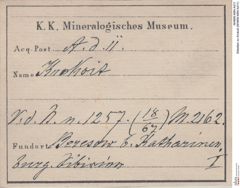 K. K. Mineralogisches Museum.
Acq. Post A. d. ü.
Name Krokoit
V. d. B. n. 1257. (18/67) M. 2162.
Fundort Beresow b. Katharinen
burg. Sibirien I